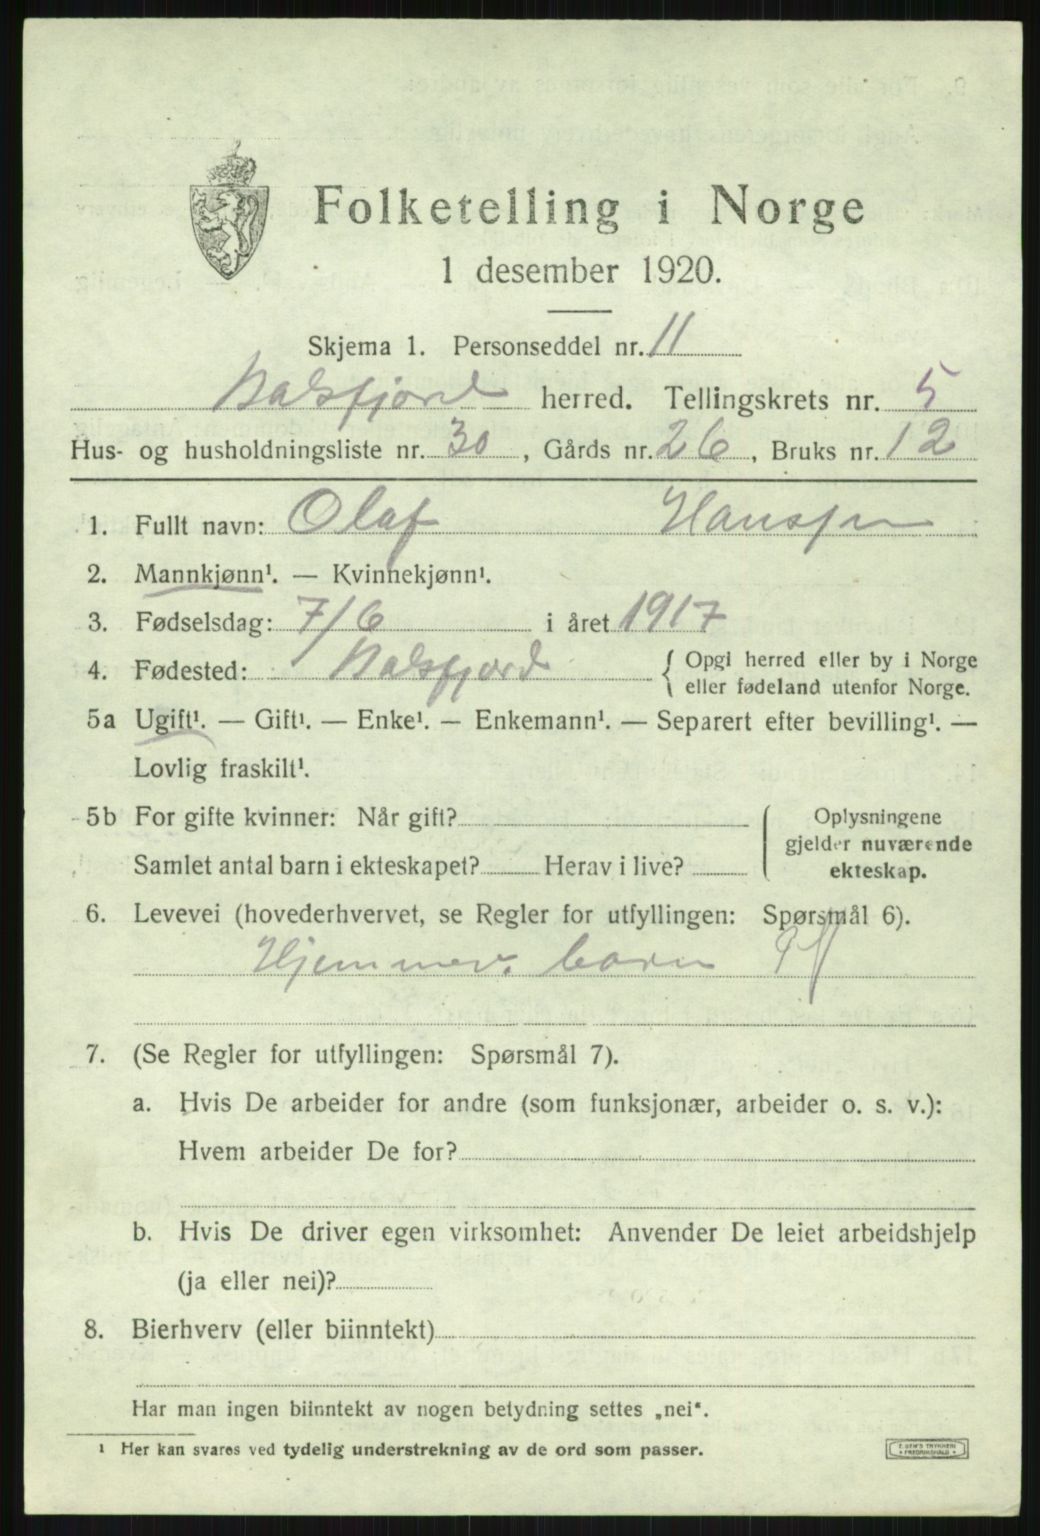 Folketelling i Norge
1 desember 1920.
Skjema 1. Personseddel nr. 11
Balsfjord herred. Tellingskrets nr. 5
Hus- og husholdningsliste nr. 30, Gårds nr. 26, Bruks nr. 12
1. Fullt navn: Olaf Hansen
2. Mannkjønn¹. — Kvinnekjønn¹.
3. Fødselsdag: 7/6 i året 1917
4. Fødested: Balsfjord { Opgi herred eller by i Norge
eller fødeland utenfor Norge.
5a Ugift¹. — Gift¹. — Enke¹. — Enkemann¹. — Separert efter bevilling¹. —
Lovlig fraskilt¹.
5b For gifte kvinner: Når gift?
Samlet antal barn i ekteskapet? Herav i live?
Oplysningene
gjelder nuværende
ekteskap.
6. Levevei (hovederhvervet, se Regler for utfyllingen: Spørsmål 6).
Hjemmev. barn
7. (Se Regler for utfyllingen: Spørsmål 7).
a. Hvis De arbeider for andre (som funksjonær, arbeider o. s. v.):
Hvem arbeider De for?
b. Hvis De driver egen virksomhet: Anvender De leiet arbeidshjelp
(ja eller nei)?
8. Bierhverv (eller biinntekt)
Har man ingen biinntekt av nogen betydning settes „nei“.
¹ Her kan svares ved tydelig understrekning av de ord som passer.